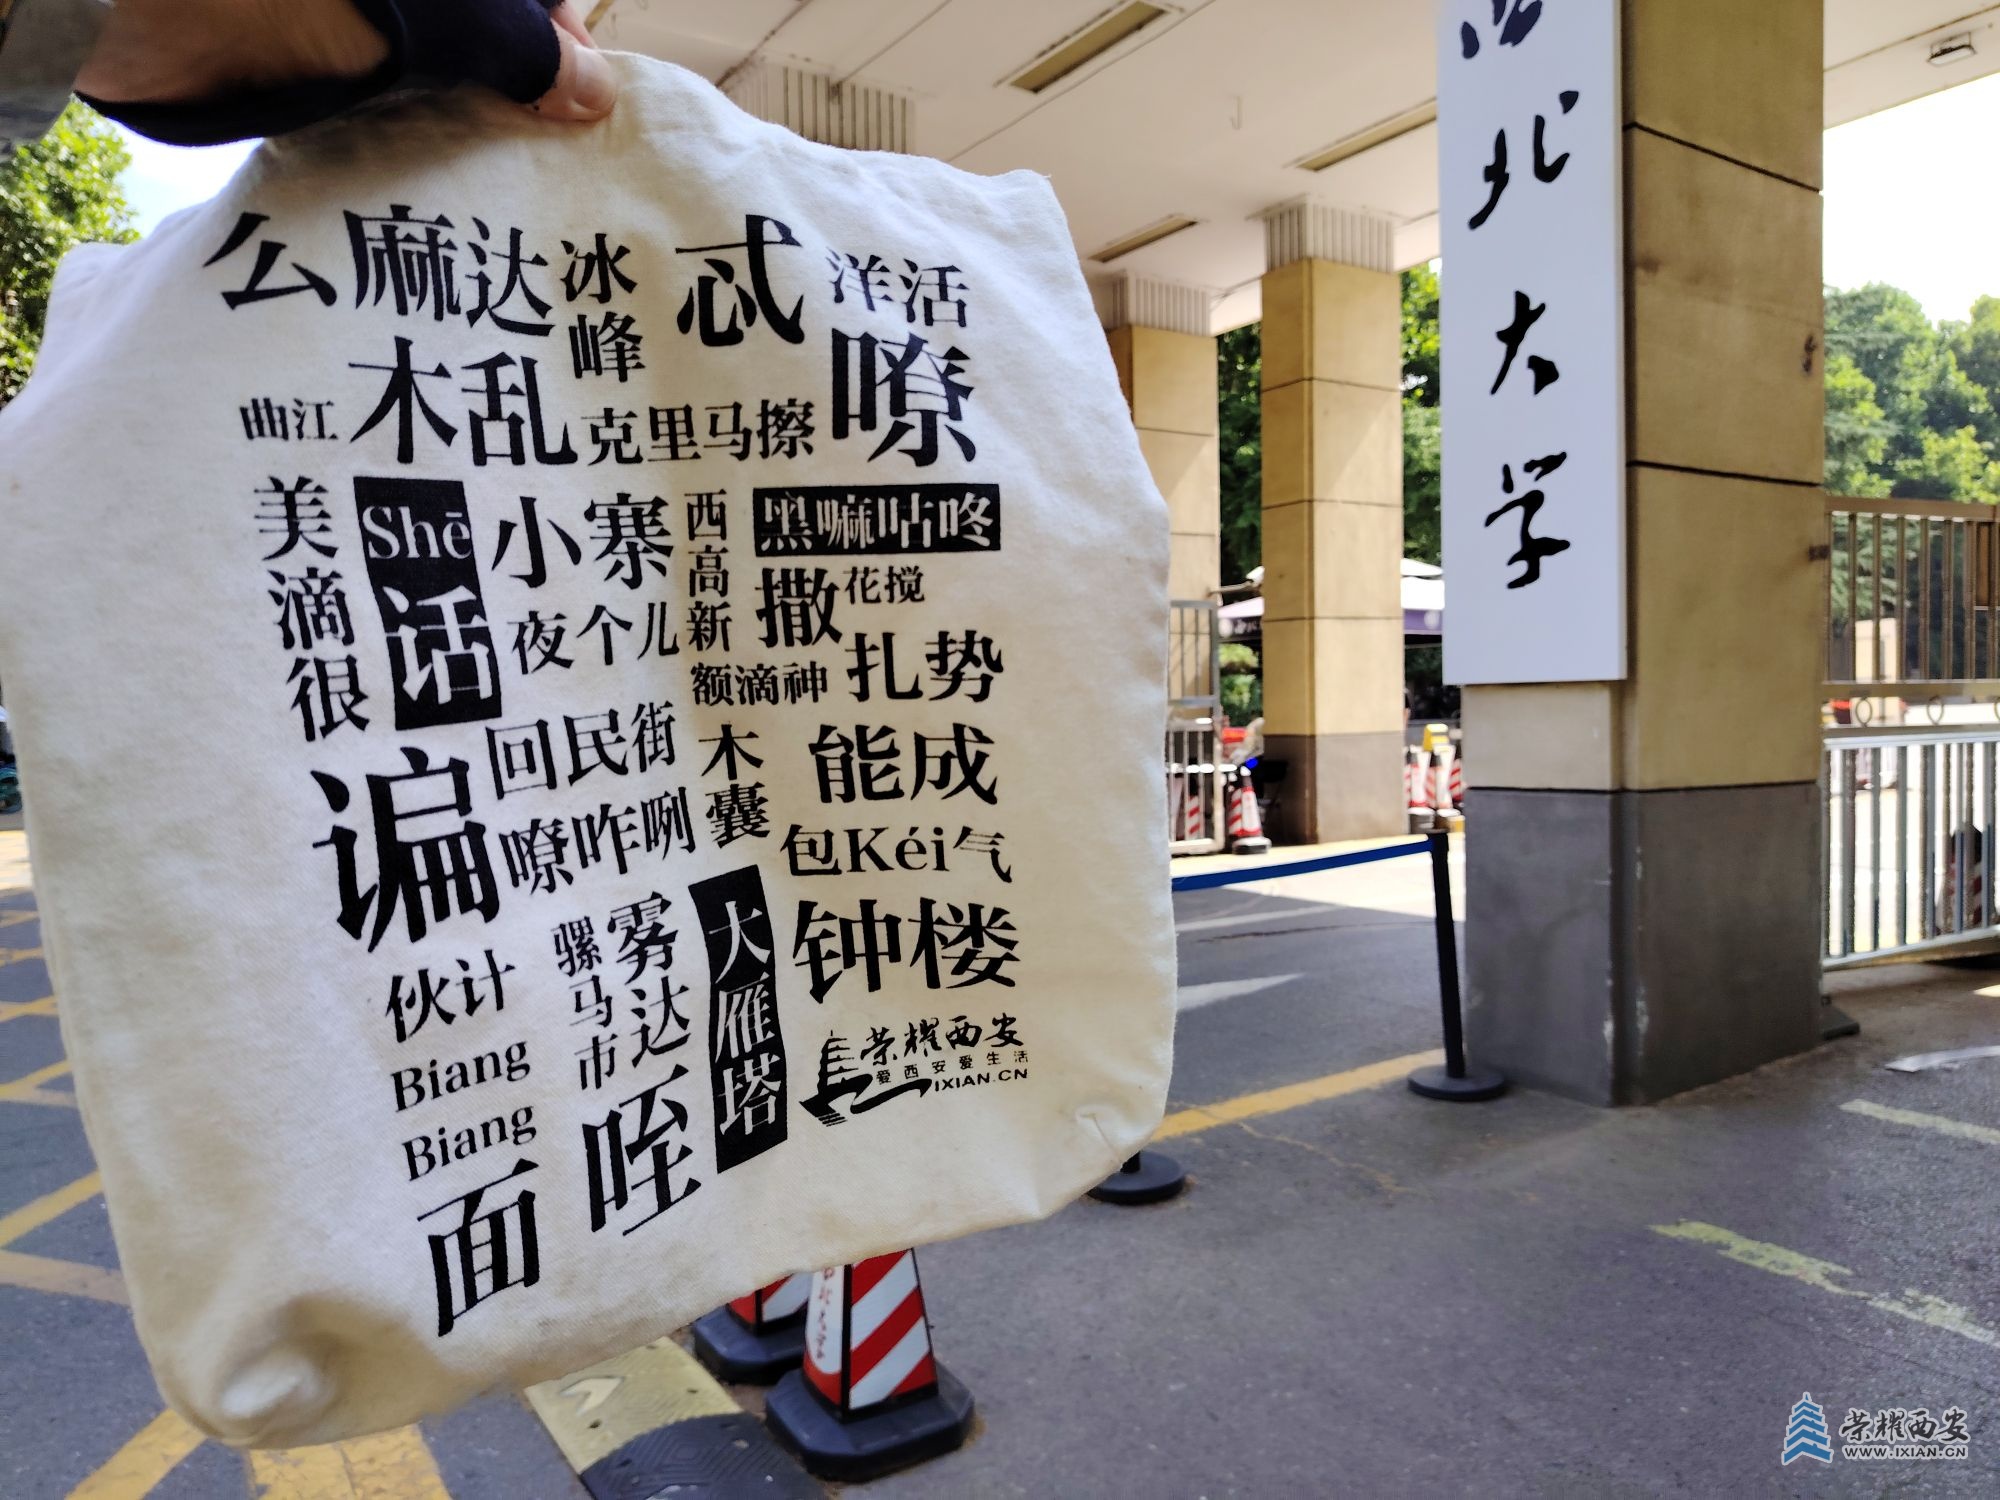 么麻达
冰峰
忒
洋活
嘹
曲江
木乱
克里马擦
美滴很
Shē话
小寨
西高新
黑嘛咕咚
撒
花搅
夜个儿
额滴神
扎势
回民街
木囊
能成
谝
嘹咋咧
包Kéi气
伙计
骡马市
雾达
大雁塔
钟楼
Biang
Biang
面
咥
荣耀西安
爱西安爱生活
IXIAN.CN
西北大学
荣耀西安
WWW.IXIAN.CN